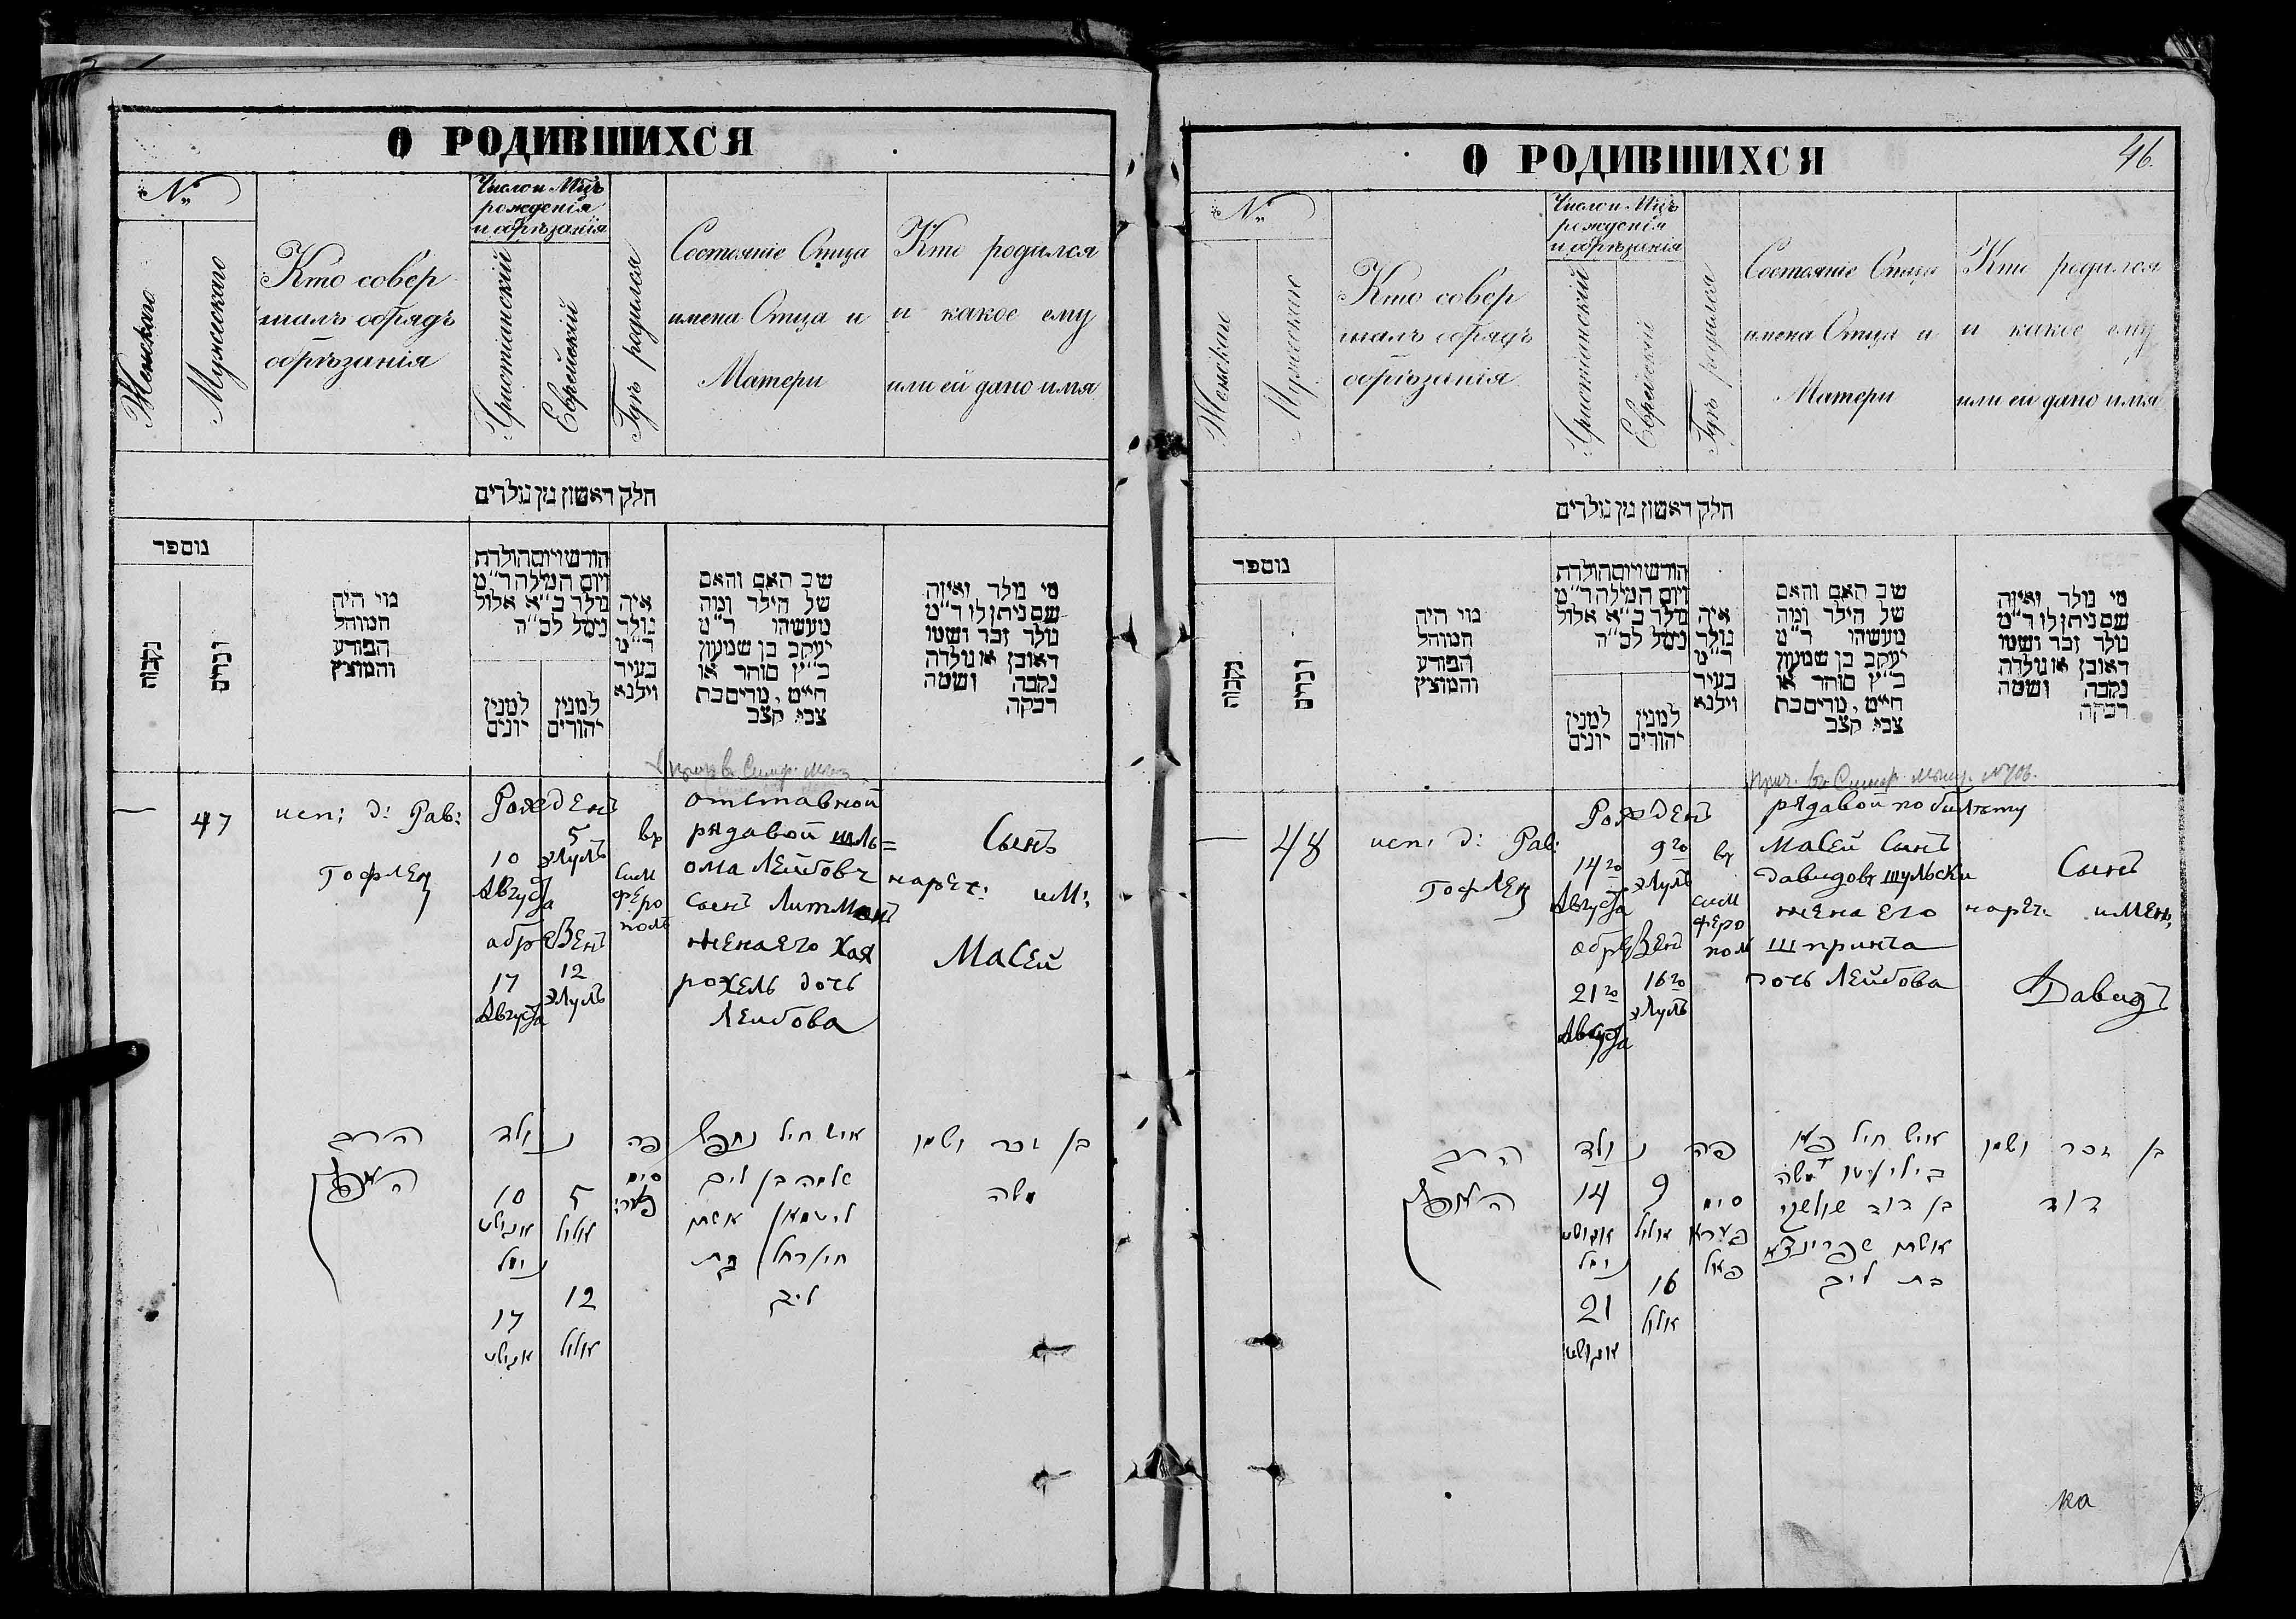 О РОДИВШИХСЯ
№
Женскаго
Мужескаго
Кто совер
шалъ обрядъ
обрѣзанія
Число и Мцъ
рожденія
и обрѣзанія
Христіанскій
Еврейскій
Гдѣ родился
Состояніе Отца
имена Отца и
Матери
Кто родился
и какое ему
или ей дано имя
חלק ראשון מן נולדים
נוספר
נקבות
זכרים
מי היה
המוהל
הפורע
והמוצץ
חודש ויום הולדת
ויום המילה ר״מ
נולד כ״א אלול
נימל לכ״ה
למנין
יונים
למנין
יהודים
איה
נולד
ר״מ
בעיר
וילנא
שב האב והאם
של הילד ומה
מעשהו ר״מ
יעקב בן שמעון
כ״ץ סוחר או
חייט, מרים בת
צבי קצב
מי נולד ואיזה
שם ניתן לו ר״מ
נולד זכר ושמו
ראובן או נולדה
נקבה ושמה
רבקה
47
исп: д: Рав:
Гофлен
Рожденъ
10
Августа
5
элулъ
обрезенъ
17
Августа
12
элулъ
въ
сим
феро
поль
отставной
рядавой шль=
ома Лейбовъ
сынъ Литманъ
жена его Хая
рохель дочь
Лейбова
Сынъ
нареч: им:
Масей
הרב
נולד
10
אוגוסט
5
אלול
נימל
17
אוגוסט
12
אלול
פה
סימ
איש חיל
שלמה בן ליב
ליטמאן אשתו
חי׳ רחל בת
ליב
בן זכר ושמו
משה
О РОДИВШИХСЯ
46.
№
Женскаго
Мужескаго
Кто совер
шалъ обрядъ
обрѣзанія
Число и Мцъ
рожденія
и обрѣзанія
Христіанскій
Еврейскій
Гдѣ родился
Состояніе Отца
имена Отца и
Матери
Кто родился
и какое ему
или ей дано имя
חלק ראשון מן נולדים
נוספר
נקבות
זכרים
מי היה
המוהל
הפורע
והמוצץ
חודש ויום הולדת
ויום המילה ר״מ
נולד כ״א אלול
נימל לכ״ה
למנין
יונים
למנין
יהודים
איה
נולד
ר״מ
בעיר
וילנא
שב האב והאם
של הילד ומה
מעשהו ר״מ
יעקב בן שמעון
כ״ץ סוחר או
חייט, מרים בת
צבי קצב
מי נולד ואיזה
שם ניתן לו ר״מ
נולד זכר ושמו
ראובן או נולדה
נקבה ושמה
רבקה
48
исп: д: Рав:
Гофлен
Рожденъ
14го
Августа
9го
элулъ
обрезенъ
21го
Августа
16го
элулъ
въ
сим
феро
пол
рядавой по билѣту
Масей Сынъ
Давидовъ шульски
жена его
шпринта
дочь Лейбова
Сынъ
нареч: имен:
Давидъ
הרב
נולד
14
אוגוסט
9
אלול
נימל
21
אוגוסט
16
אלול
פה
סימ
פערא
פאל
איש חיל
משה
בן דוד שולסקי
אשתו שפרינצא
בת ליב
בן זכר ושמו
דוד